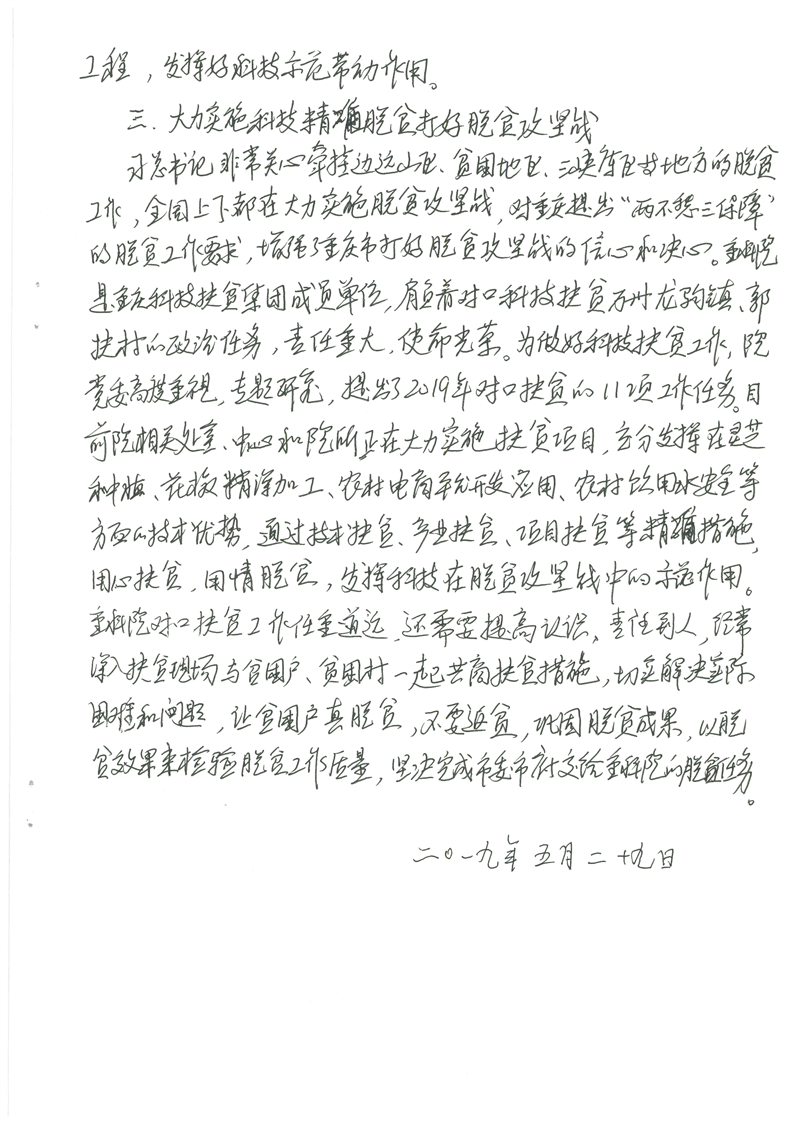 工程，发挥好科技示范带动作用。
三．大力实施科技精准脱贫打好脱贫攻坚战
习总书记非常关心牵挂边远山区、贫困地区、三峡库区等地方的脱贫
工作，全国上下都在大力实施脱贫攻坚战，对重庆提出“两不愁三保障”
的脱贫工作要求，增强了重庆市打好脱贫攻坚战的信心和决心。重科院
是重庆科技扶贫集团成员单位，肩负着对口科技扶贫万州龙驹镇、郭
扶村的政治任务，责任重大，使命光荣。为做好科技扶贫工作，院
党委高度重视，专题研究，提出了2019年对口扶贫的11项工作任务。目
前院相关处室、中心和院所正在大力实施扶贫项目，充分发挥在灵芝
种植、花椒精深加工、农村电商平台开发应用、农村饮用水安全等
方面的技术优势，通过技术扶贫、产业扶贫、项目扶贫等精准措施，
用心扶贫，用情脱贫，发挥科技在脱贫攻坚战中的示范作用。
重科院对口扶贫工作任重道远，还需要提高认识，责任到人，经常
深入扶贫现场与贫困户、贫困村一起共商扶贫措施，切实解决实际
困难和问题，让贫困户真脱贫，不要返贫，巩固脱贫成果，以脱
贫效果来检验脱贫工作质量，坚决完成市委市府交给重科院的脱贫任务。
二〇一九年五月二十九日